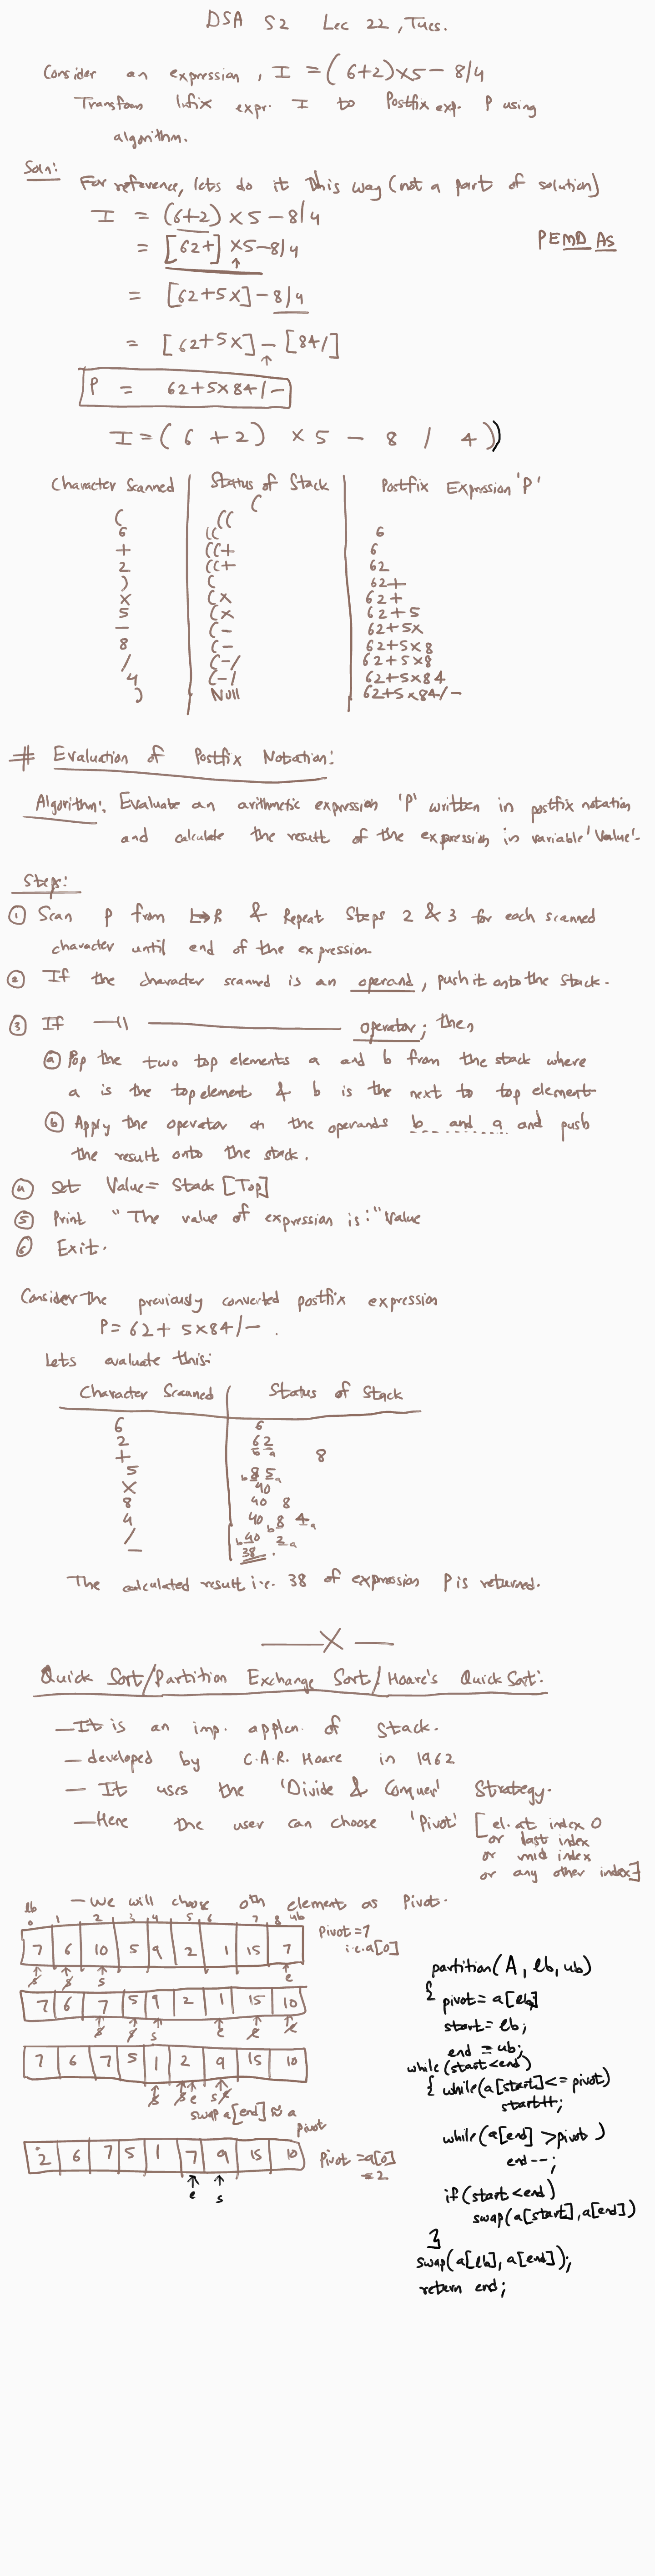 DSA S2 Lec 22, Tues.
Consider an expression, I = (6+2)×5-8/4
Transform Infix expr. I to Postfix exp. P using
algorithm.
Soln:
For reference, lets do it this way (not a part of solution)
I = (6+2)×5-8/4
= [62+]×5-8/4
PEMDAS
= [62+5×]-8/4
= [62+5×]-[84/]
P = 62+5×84/-
I = ( 6 + 2 ) × 5 - 8 / 4 ))
Character Scanned | Status of Stack | Postfix Expression 'P'
(
( ((
6 (( 6
+ ((+ 6
2 ((+ 62
) ( 62+
× (× 62+
5 (× 62+5
- (- 62+5×
8 (- 62+5×8
/ (-/ 62+5×8
4 (-/ 62+5×84
) Null 62+5×84/-
# Evaluation of Postfix Notation:
Algorithm: Evaluate an arithmetic expression 'P' written in postfix notation
and calculate the result of the expression in variable 'Value'.
Steps:
① Scan P from L→R & Repeat Steps 2 & 3 for each scanned
character until end of the expression.
② If the character scanned is an operand, push it onto the stack.
③ If —||— operator; then,
ⓐ Pop the two top elements a and b from the stack where
a is the top element & b is the next to top element
ⓑ Apply the operator on the operands b and a and push
the result onto the stack.
④ Set Value = Stack[Top]
⑤ Print "The value of expression is:" Value
⑥ Exit.
Consider the previously converted postfix expression
P = 62+5×84/-.
Lets evaluate this:
Character Scanned | Status of Stack
6 6
2 6 2
+ b a 8
5 b 8 5 a
× 40
8 40 8
4 40 b 8 4 a
/ b 40 2 a
- 38.
The calculated result i.e. 38 of expression P is returned.
—X—
Quick Sort/Partition Exchange Sort/Hoare's Quick Sort:
- It is an imp. applcn. of Stack.
- developed by C.A.R. Hoare in 1962
- It uses the 'Divide & Conquer' Strategy.
- Here the user can choose 'Pivot' [el. at index 0
or last index
or mid index
or any other index]
- We will choose 0th element as Pivot.
lb ub
0 1 2 3 4 5 6 7 8
7 6 10 5 9 2 1 15 7
Pivot = 7
i.e. a[0]
s s s e
7 6 7 5 9 2 1 15 10
s s s e e e
7 6 7 5 1 2 9 15 10
s s e s e
swap a[end] ≈ a
pivot
2 6 7 5 1 7 9 15 10
Pivot = a[0]
= 2
e s
partition(A, lb, ub)
{ pivot = a[lb]
start = lb;
end = ub;
while(start<end)
{ while(a[start]<=pivot)
start++;
while(a[end] >pivot )
end--;
if(start<end)
swap(a[start],a[end])
}
swap(a[lb], a[end]);
return end;